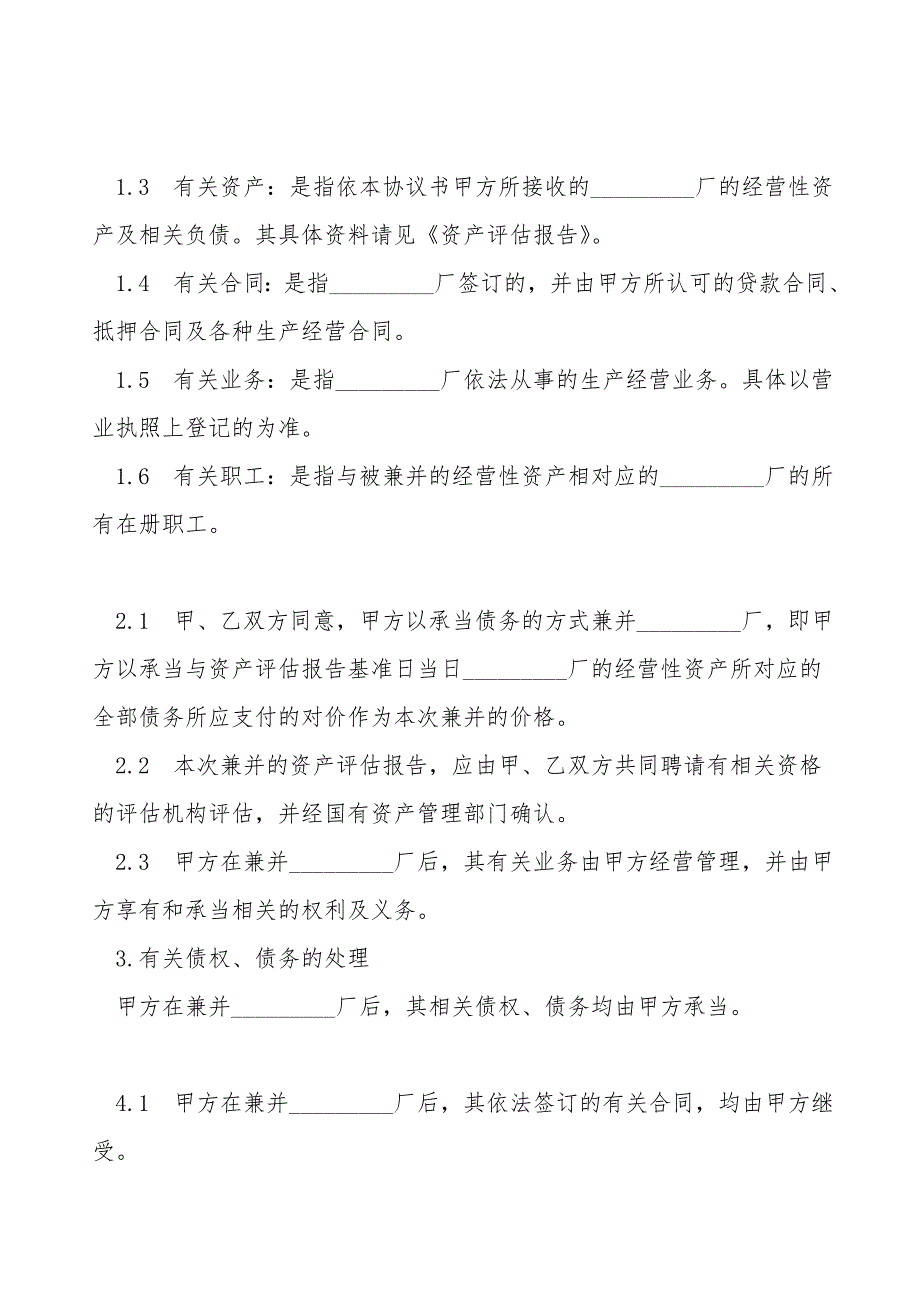 1.3 有关资产：是指依本协议书甲方所接收的_________厂的经营性资
产及相关负债。其具体资料请见《资产评估报告》。
1.4 有关合同：是指_________厂签订的，并由甲方所认可的贷款合同、
抵押合同及各种生产经营合同。
1.5 有关业务：是指_________厂依法从事的生产经营业务。具体以营
业执照上登记的为准。
1.6 有关职工：是指与被兼并的经营性资产相对应的_________厂的所
有在册职工。
2.1 甲、乙双方同意，甲方以承当债务的方式兼并_________厂，即甲
方以承当与资产评估报告基准日当日_________厂的经营性资产所对应的
全部债务所应支付的对价作为本次兼并的价格。
2.2 本次兼并的资产评估报告，应由甲、乙双方共同聘请有相关资格
的评估机构评估，并经国有资产管理部门确认。
2.3 甲方在兼并_________厂后，其有关业务由甲方经营管理，并由甲
方享有和承当相关的权利及义务。
3.有关债权、债务的处理
甲方在兼并_________厂后，其相关债权、债务均由甲方承当。
4.1 甲方在兼并_________厂后，其依法签订的有关合同，均由甲方继
受。